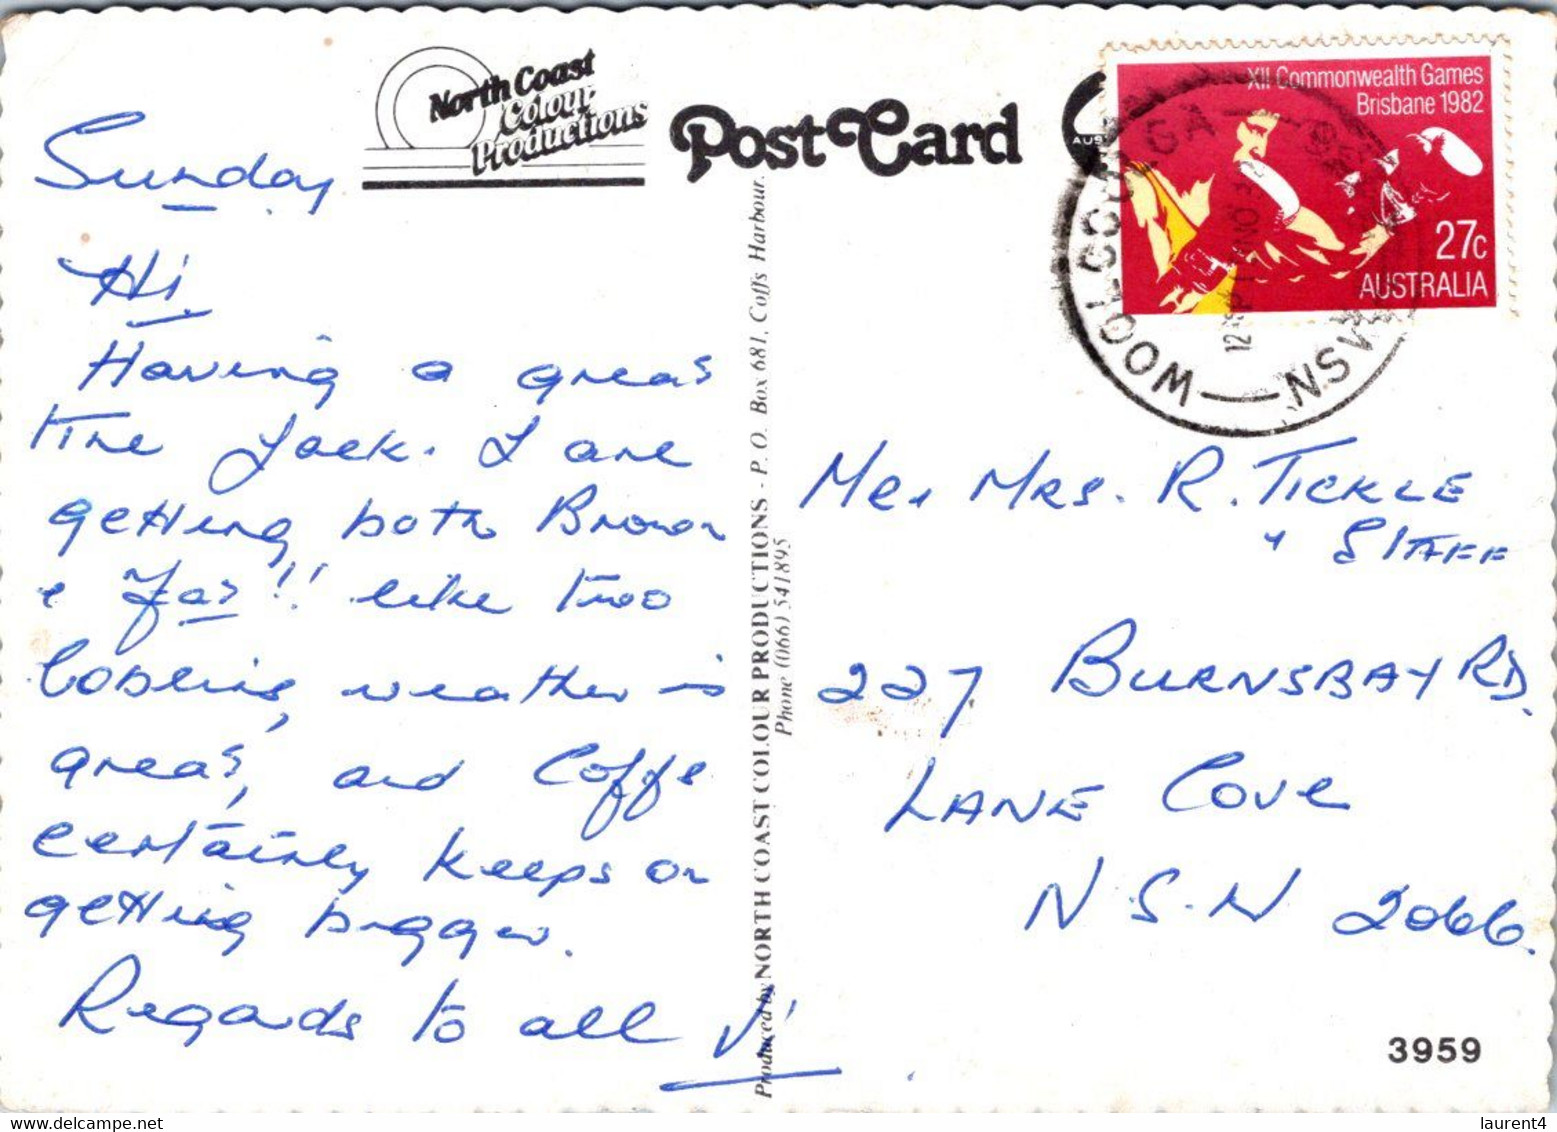 North Coast
Colour
Productions
PostCard
AUS
XII Commonwealth Games
Brisbane 1982
27c
AUSTRALIA
WOOLGOOLGA
Sunday
Hi
Having a great
time Jack. I are
getting both Brown
& Fat!! like two
weather is
great, and Coffs
certainly keeps on
getting bigger.
Regards to all
Produced by NORTH COAST COLOUR PRODUCTIONS - P. O. Box 681, Coffs Harbour.
Phone (066) 541895
Mr. Mrs. R. Tickle
& Staff
227 Burnsbay Rd.
Lane Cove
N.S.W 2066.
3959
laurent4